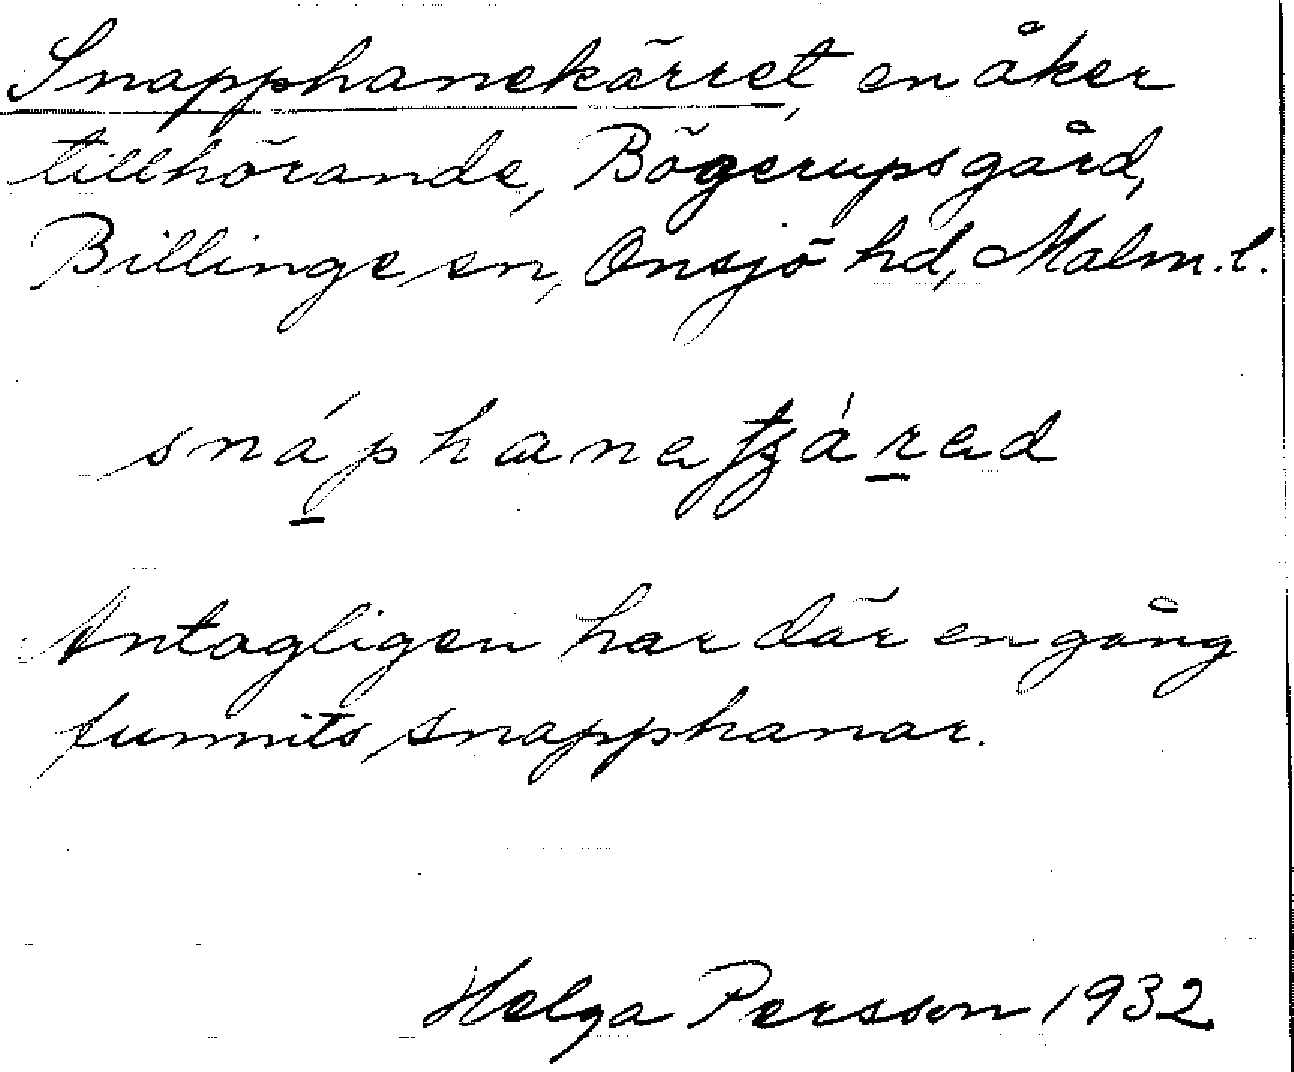 Snapphanekärret, en åker
tillhörande, Bögerupsgård,
Billinge sn, Onsjö hd, Malm. l.
snáp̱hanatʒáṟad
Antagligen har där en gång
funnits snapphanar.
Helga Persson 1932